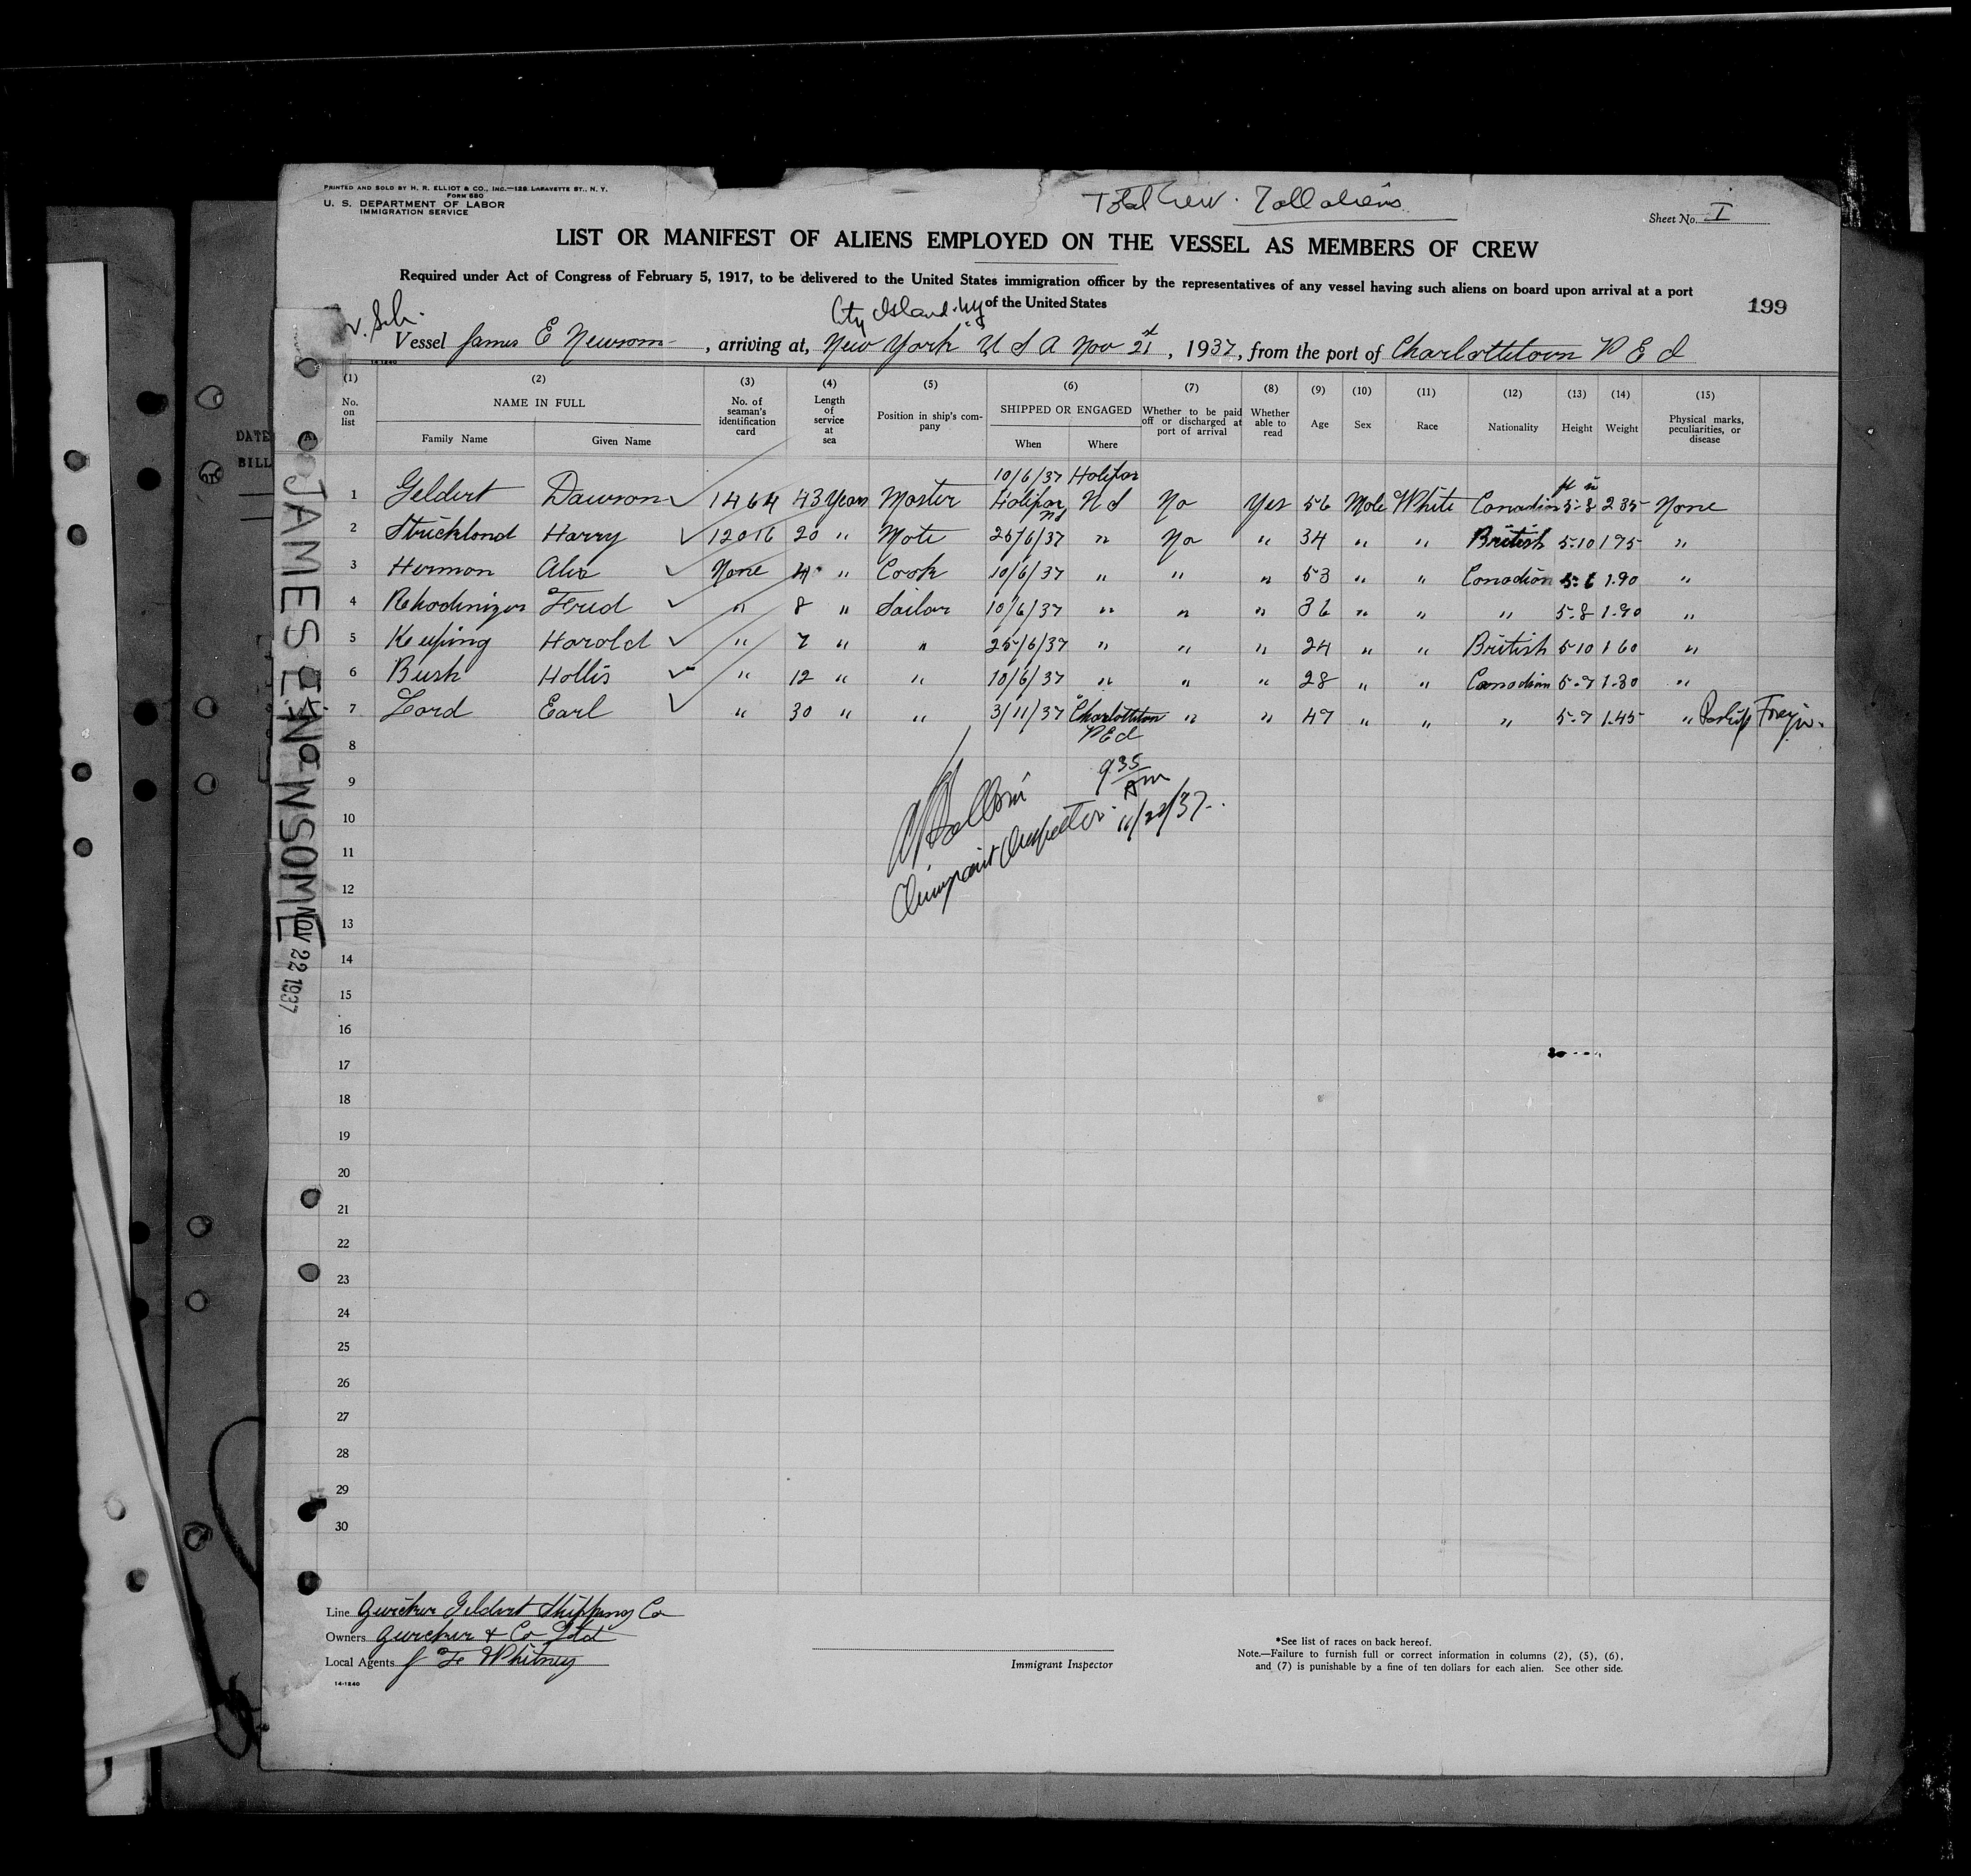 PRINTED AND SOLD BY H. R. ELLIOT & CO., INC.—128 LAFAYETTE ST., N. Y.
FORM 680
U. S. DEPARTMENT OF LABOR
IMMIGRATION SERVICE
Total Crew. 7 all aliens
Sheet No. I
LIST OR MANIFEST OF ALIENS EMPLOYED ON THE VESSEL AS MEMBERS OF CREW
Required under Act of Congress of February 5, 1917, to be delivered to the United States immigration officer by the representatives of any vessel having such aliens on board upon arrival at a port
of the United States
199
City Island. Ny
Vessel James E Newsom, arriving at, New York U S A Nov 21st, 1937, from the port of Charlottetown P E I
14-1240
(1) (2) (3) (4) (5) (6) (7) (8) (9) (10) (11) (12) (13) (14) (15)
No. on list NAME IN FULL Family Name Given Name No. of seaman's identification card Length of service at sea Position in ship's company SHIPPED OR ENGAGED When Where Whether to be paid off or discharged at port of arrival Whether able to read Age Sex Race Nationality Height Weight Physical marks, peculiarities, or disease
10/6/37 Halifax
ft in
1 Geldert Dawson 1464 43 Years Master Halifax N S No Yes 56 Male White Canadian 5-8 235 None
NS
2 Strickland Harry 12016 20 " Mate 25/6/37 " No " 34 " " British 5-10 195 "
3 Herman Alex None 4 " Cook 10/6/37 " " " 53 " " Canadian 5-6 1.90 "
4 Rhodinizer Fred " 8 " Sailor 10/6/37 " " " 36 " " " 5-8 1.90 "
5 Keeping Harold " 7 " " 25/6/37 " " " 24 " " British 5-10 160 "
6 Bush Hollis " 12 " " 10/6/37 " " " 28 " " Canadian 5-7 1.30 "
7 Lord Earl " 30 " " 3/11/37 Charlotteton " " 47 " " " 5-7 1.45 "
P E I
8
9
10
11
12
13
14
15
16
17
18
19
20
21
22
23
24
25
26
27
28
29
30
9 35 Am
Immigrant Inspector 11/22/37
JAMES E. NEWSOME
NOV 22 1937
DATE
BILL
Line Zwicker Geldert Shipping Co
Owners Zwicker & Co Ltd
Local Agents J F Whitney
14-1240
Immigrant Inspector
*See list of races on back hereof.
Note.—Failure to furnish full or correct information in columns (2), (5), (6),
and (7) is punishable by a fine of ten dollars for each alien. See other side.